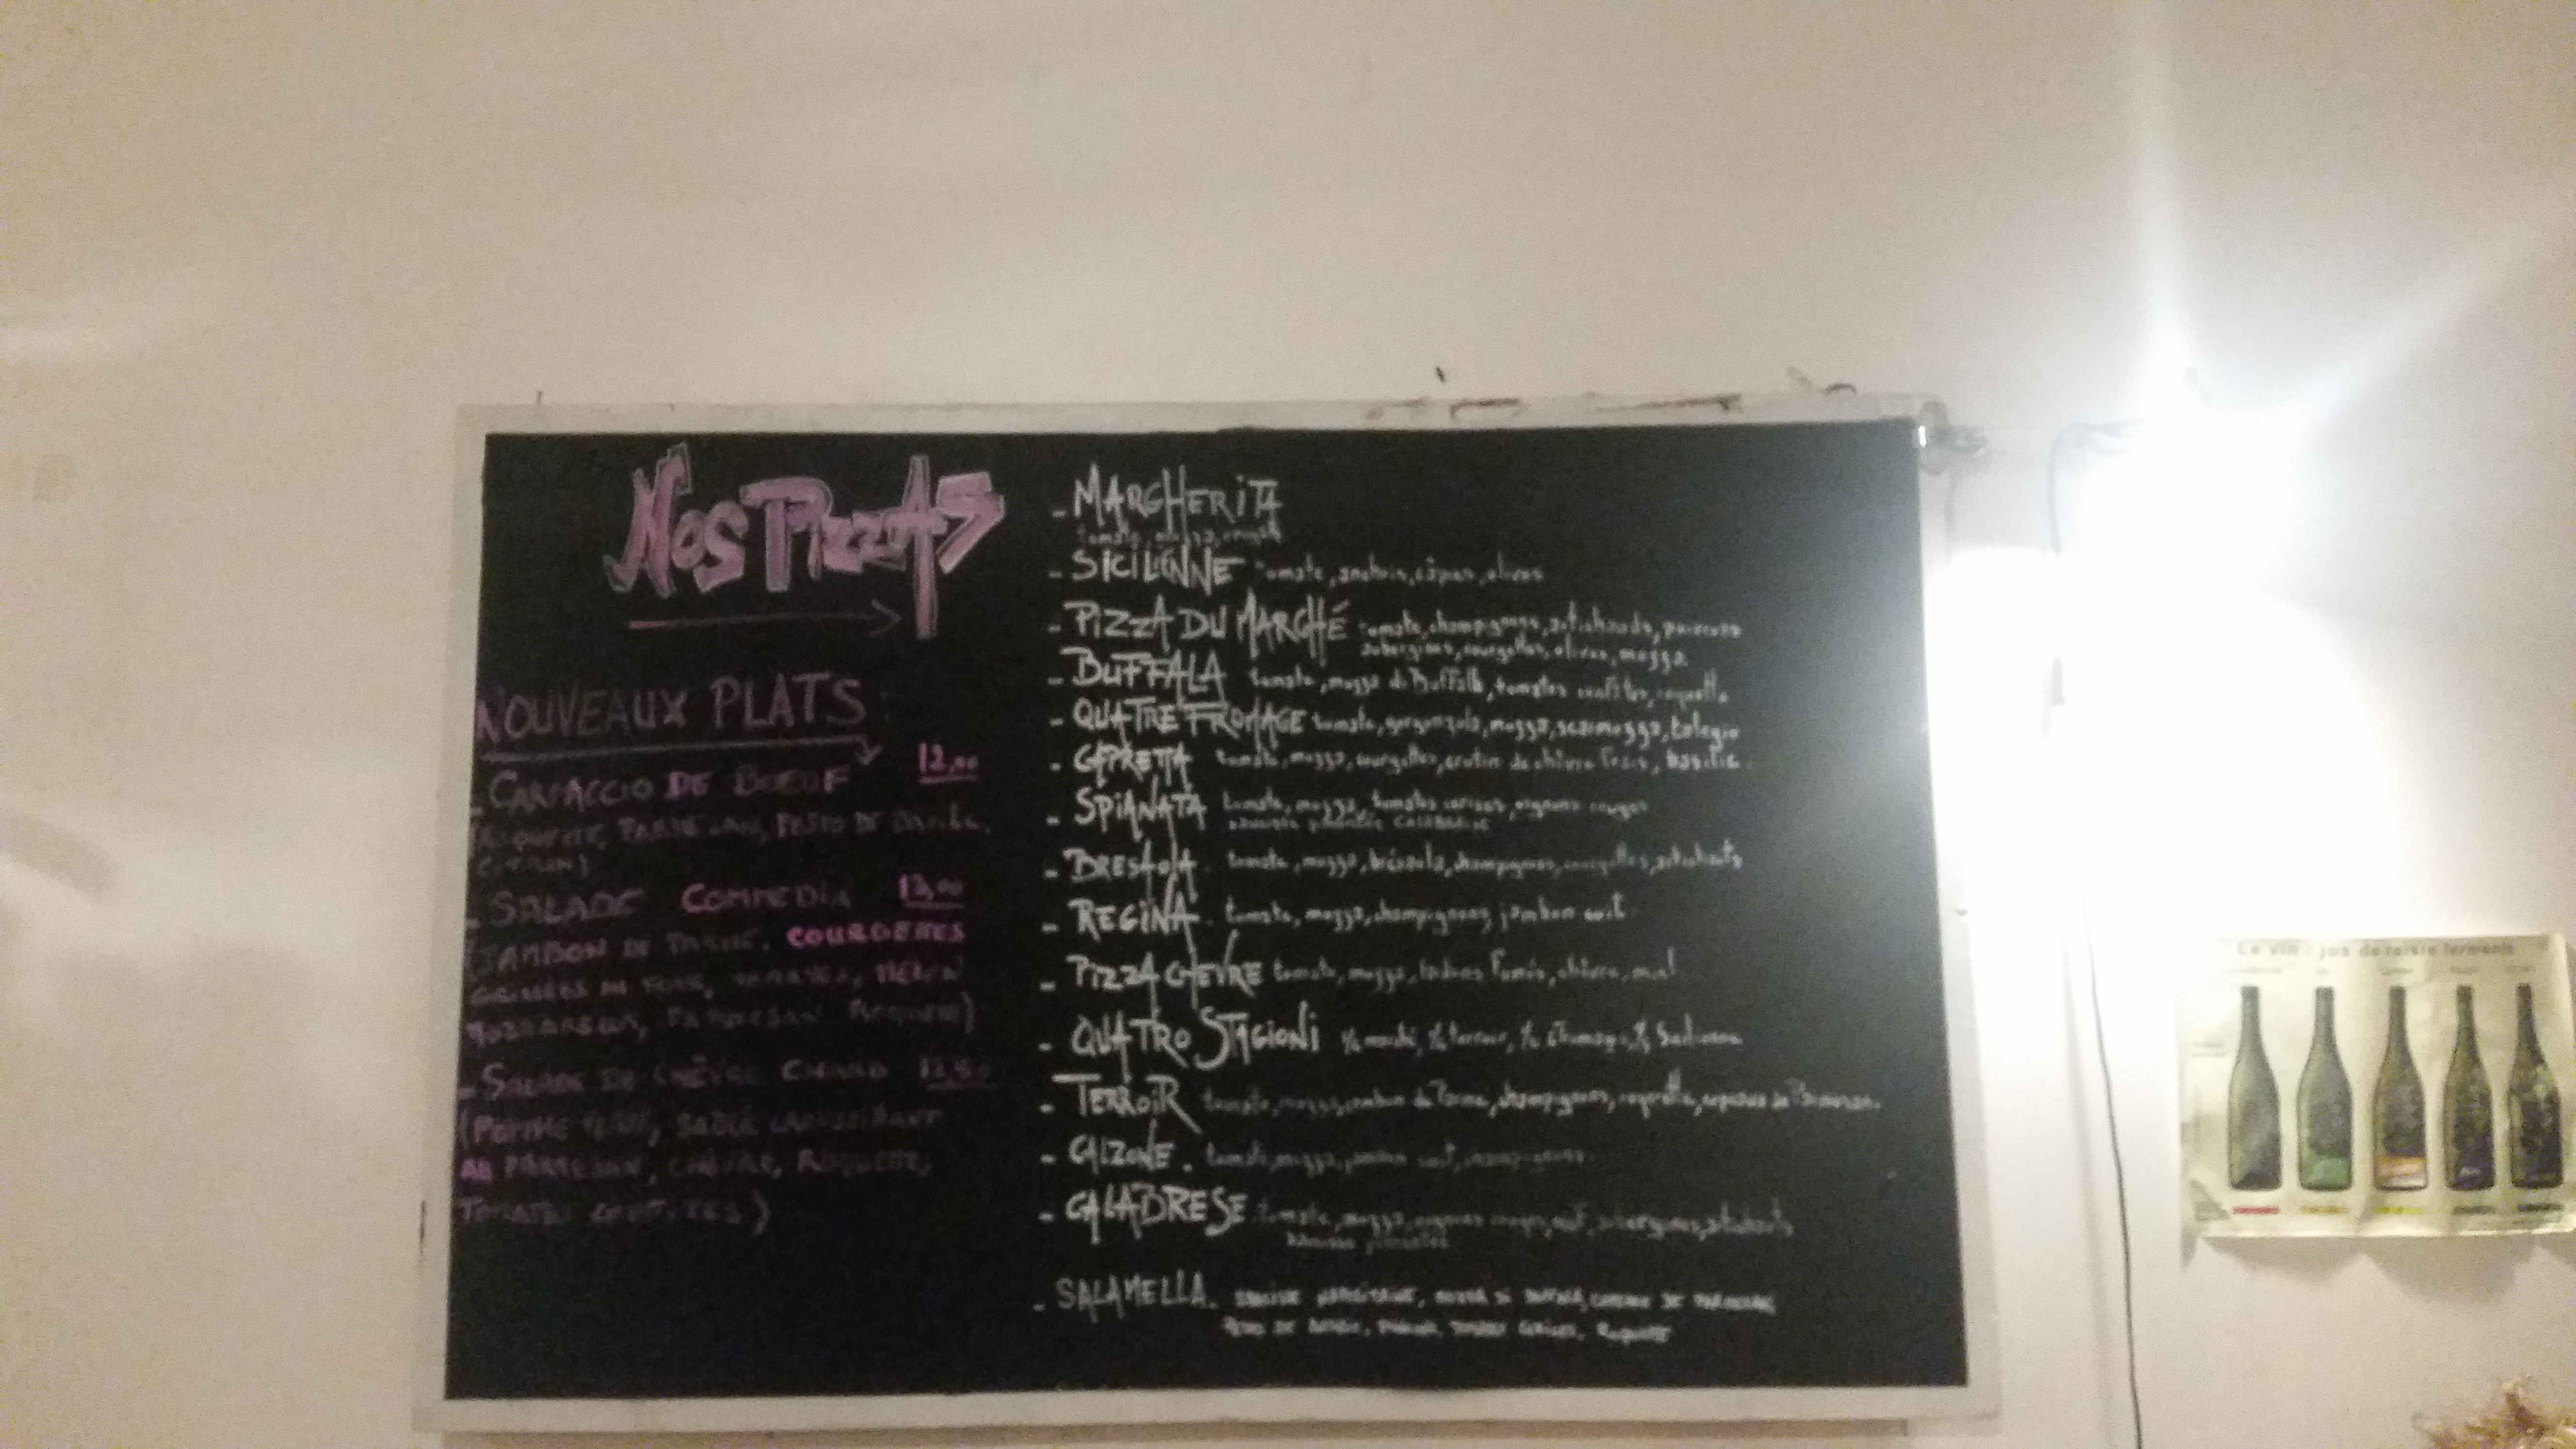 Nos PizzAs
NOUVEAUX PLATS
- CARPACCIO DE BOEUF 12,00
CITRON)
- SALADE COMMEDIA 13,00
(JAMBON DE PARME, COURGETTES
GRILLÉES AU FOUR, TOMATES,
MOZZARELLA, PARMESAN ROQUETTE)
- SALADE DE CHÈVRE CHAUD 12,50
(POMME VERTE, SABLÉ CROUSTILLANT
AU PARMESAN, CHÈVRE, ROQUETTE,
TOMATES CONFITES)
- MARGHERITA
tomate, mozza, origan
- SICILIENNE tomate, anchois, câpres, olives
- PIZZA DU MARCHÉ tomate, champignons, artichauts, poivrons
aubergines, courgettes, olives, mozza
- BUFFALA tomate, mozza di Buffala, tomates confites, roquette
- QUATRE FROMAGE tomate, gorgonzola, mozza, scamozza, talegio
- CAPRETTA tomate, mozza, courgettes, crotin de chèvre frais, basilic
- SPIANATA tomate, mozza, tomates cerises, oignons rouges
- BRESAOLA tomate, mozza, brésaola, champignons, courgettes, artichauts
- REGINA tomate, mozza, champignons, jambon cuit
- PIZZA CHEVRE tomate, mozza, lardons fumés, chèvre, miel
- QUATRO STAGIONI
- TERROIR tomate, mozza, jambon de Parme, champignons, roquette, copeaux de Parmesan
- CALZONE. tomate, mozza, jambon cuit, champignons
- CALABRESE tomate, mozza, oignons rouges, aubergines, artichauts
- SALAMELLA.
PESTO DE TOMATES CERISES, ROQUETTE
Le vin : jus de raisin fermenté